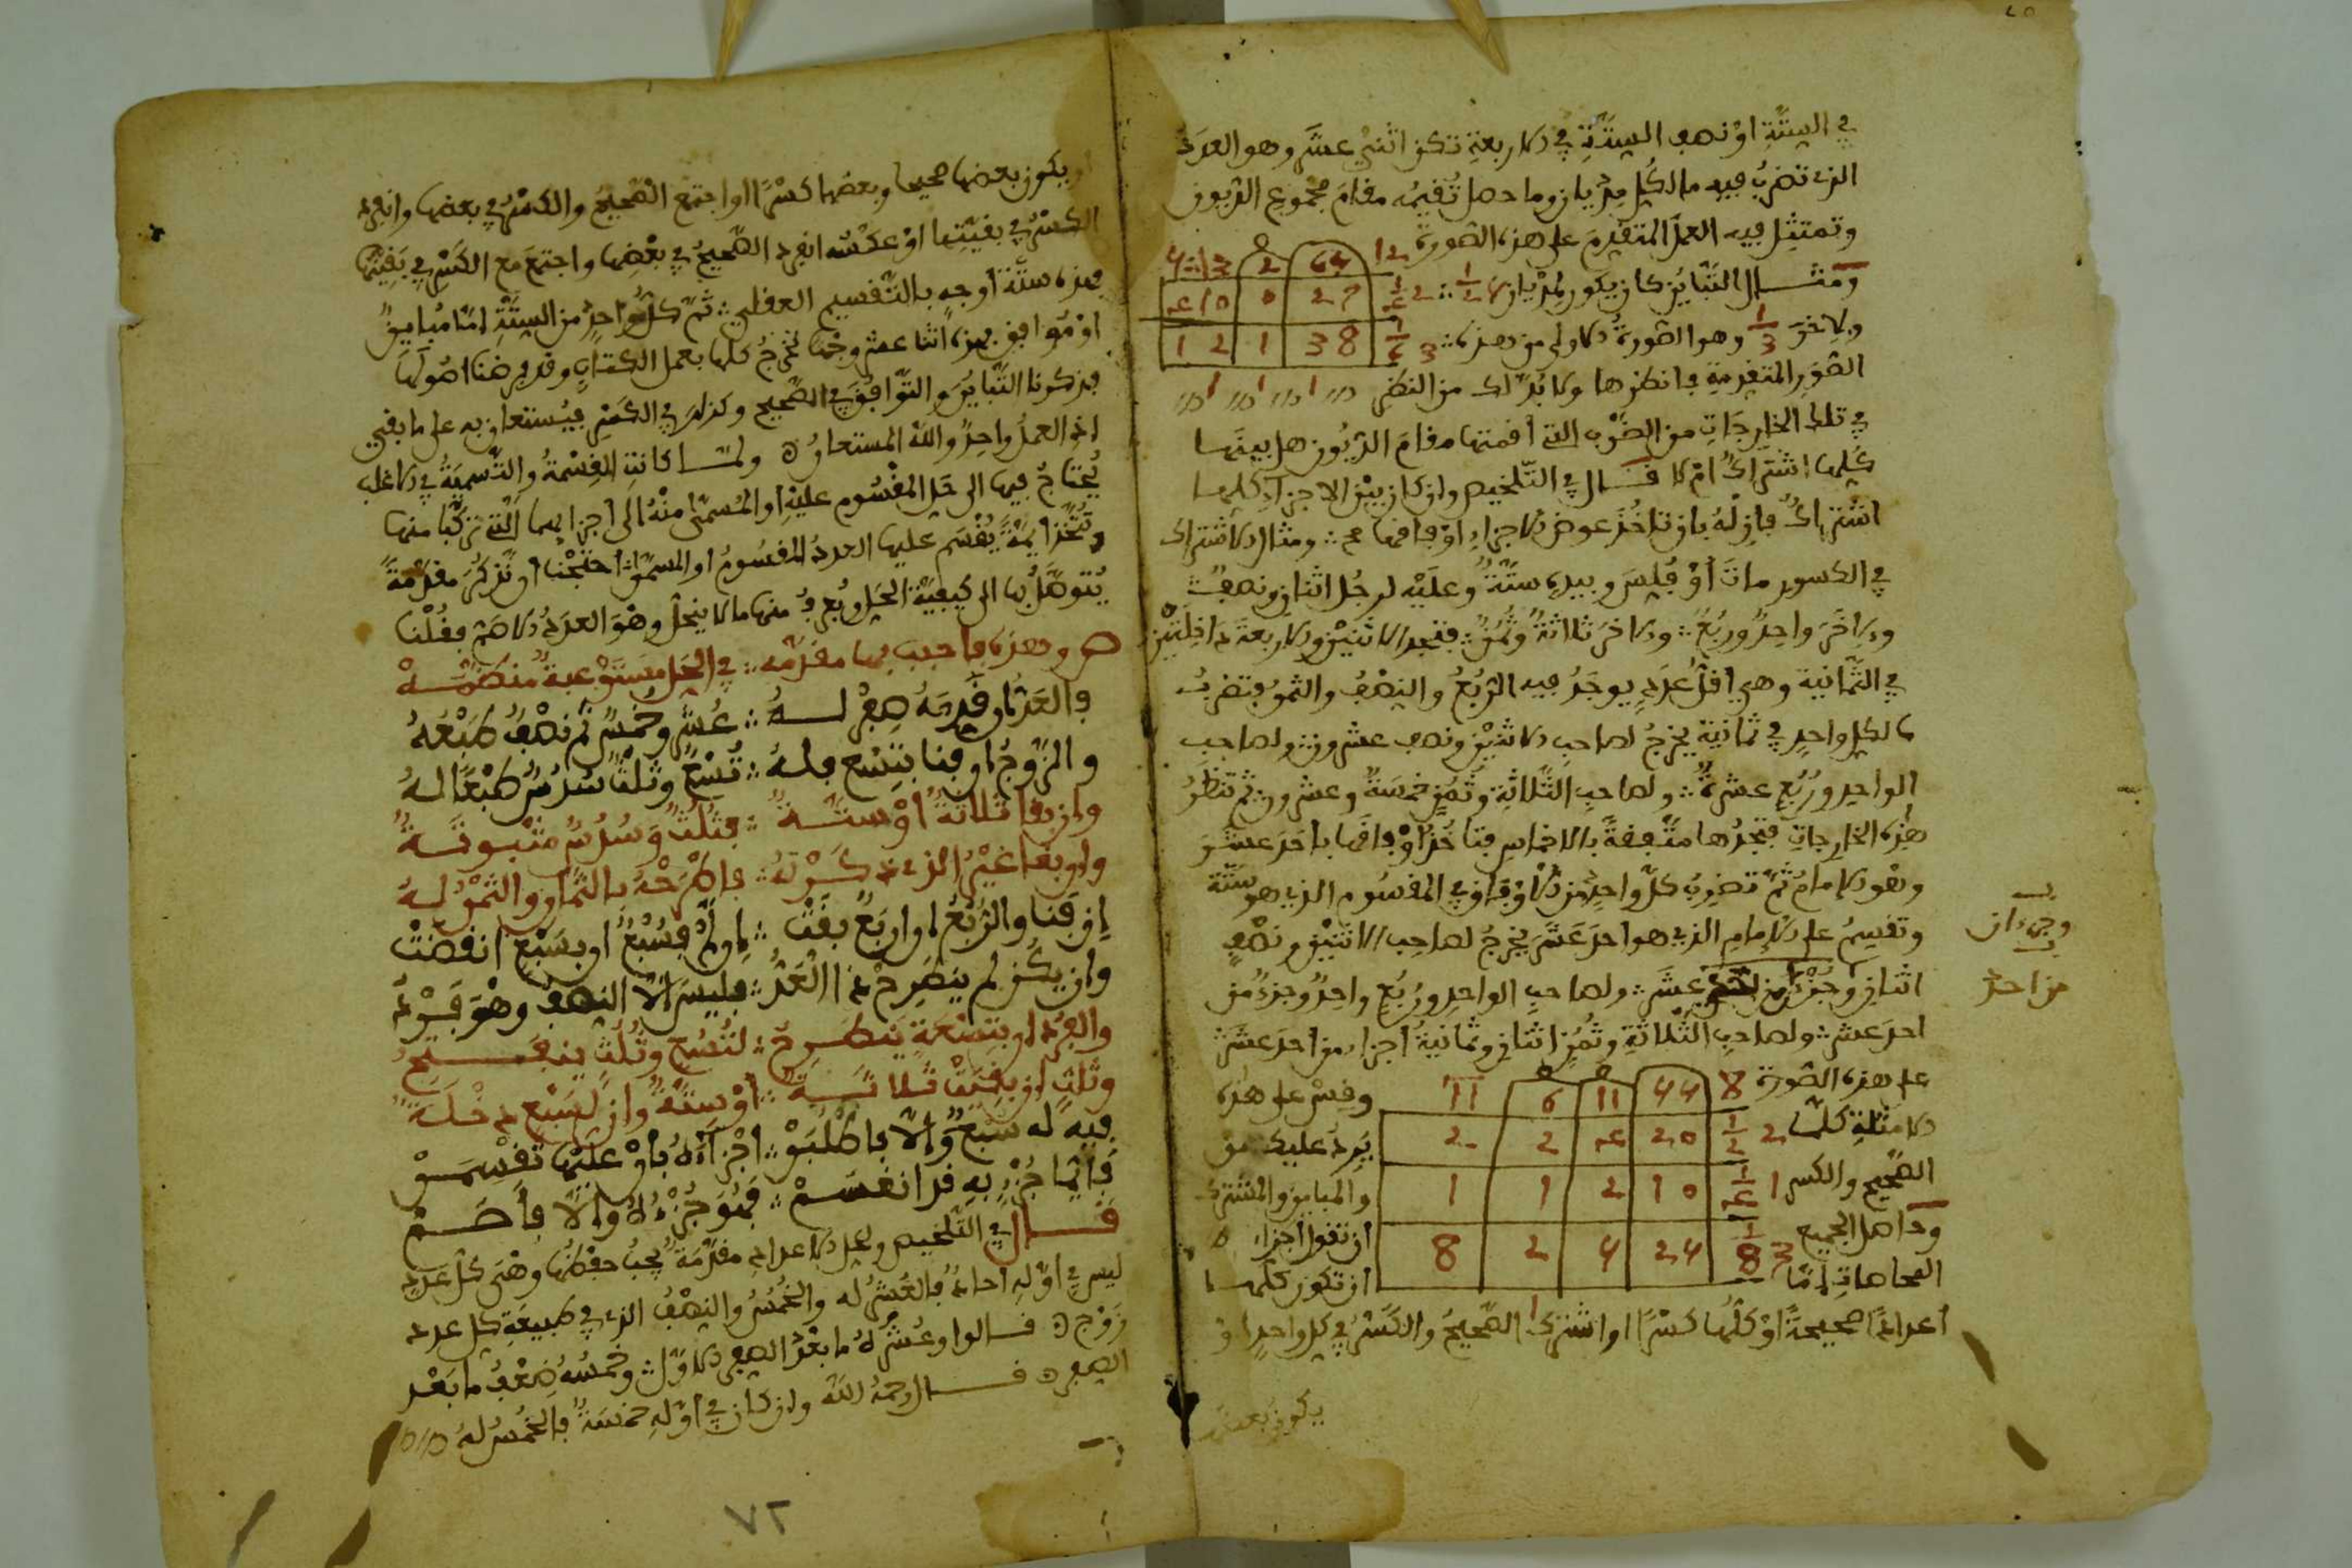 في الستة او نصف الستة في الاربعة تكن اثني عشر وهو العدد
الذي تضرب فيه ما لكل مديان وما حصل تقيمه مقام مجموع الديون
وتمتثل فيه العمل المتقدم على هذه الصورة
ومثال التباين كان يكون لمديان
وللاخر 1/3 وهو الصورة الاولى من هذه
الصور المتقدمة فانظرها ولا بد لك من النظر
في تلك الخارجات من الضرب التي اقمتها مقام الديون هل بينها
كلها اشتراك ام لا قال في التلخيص وان كان بين الاجزاء كلها
اشتراك فازله بان تاخذ عوض الاجزاء اوفاقها ومثال الاشتراك
في الكسور مات او فلس وبيده ستة وعليه لرجل اثنان ونصف
ولاخر واحد وربع والاخر ثلاثة وثمن فتجد الاثنين والاربعة داخلتين
في الثمانية وهي اقل عدد يوجد فيه الربع والنصف والثمن فتضرب
ما لكل واحد في ثمانية يخرج لصاحب الاثنين ونصف عشرون ولصاحب
الواحد وربع عشرة ولصاحب الثلاثة وثمن خمسة وعشرون ثم تنظر
هذه الخارجات فتجدها متفقة بالاخماس فتاخذ اوفاقها باحد عشر
وهو الامام ثم تضرب كل واحد من الاوفاق في المقسوم الذي هو ستة
وتقسم على الامام الذي هو احد عشر يخرج لصاحب الاثنين ونصف
اثنان وجزء من احد عشر ولصاحب الواحد وربع واحد وجزء من
احد عشر ولصاحب الثلاثة وثمن اثنان وثمانية اجزاء من احد عشر
على هذه الصورة 8 44 11 6 11 وقس على هذه
الامثلة كلها 2 1/2 20 4 2 2 يرد عليك من
الصحيح والكسر 1 1/4 10 2 1 1 والمباين والمشترك
وحاصل الجميع 3 1/8 24 4 2 8 ان تقول اجزاء
المحاصات اما ان تكون كلها
اعدادا صحيحة او كلها كسرا او اشترك الصحيح والكسر في كل واحد او
يكون بعضها
وجزءان
من احد
او يكون بعضها صحيحا وبعضها كسرا او اجتمع الصحيح والكسر في بعضها وانفرد
الكسر في بقيتها او عكسه انفرد الصحيح في بعضها واجتمع مع الكسر في بقيتها
فهذه ستة اوجه بالتقسيم العقلي ثم كل واحد من الستة اما مباين
او موافق فهذه اثنا عشر وجها تخرج كلها بعمل الكتاب وقد فرضنا اصولها
فذكرنا التباين والتوافق في الصحيح وكذلك في الكسر فيستعان به على ما بقي
اذ العمل واحد والله المستعان ولما كانت القسمة والتسمية في الاغلب
يحتاج فيها الى حل المقسوم عليه او المسمى منه الى اجزائهما التي تركبا منها
وتتخذ ايمة يقسم عليها العدد المقسوم او المسمى احتجنا ان نذكر مقدمة
يتوصل بها الى كيفية الحل ويعرف منها ما لا ينحل وهو العدد الاصم فقلنا
ص وهذه فاحتفظ بها مقدمه في الحل مستوعبة منظمه
فالعد ان قدمه صفر له عشر وخمس ثم نصف طبعه
والزوج ان فنا بتسع فله تسع وثلث سدس طبعا له
وان بقا ثلاثة او سته فثلث وسدس مثبوته
وان بقا غير الذي ذكرته فاطرحه بالثمان والثمن له
ان فنا والربع ان اربع بقت او لا فسبع ان بسبع انقضت
وان يكن لم ينطرح ذا العد فليس الا النصف وهو فرد
والفرد ان بتسعة ينطرح لتسع وثلث ينفسح
وثلث ان بقيت ثلاثه او ستة وان لسبع دخله
فيه له سبع والا فاطلبو اجزاءه باو عليها تقسمو
فايما جزء به قد انقسم فهو جزءه والا فاصم
قال في التلخيص ولحل الاعداد مقدمة يجب حفظها وهي كل عدد
ليس في اوله احاد فالعشر له والخمس والنصف الذي في طبيعة كل عدد
زوج قالوا وعشره ما بعد الصفر الاول وخمسه ضعف ما بعد
الصفر قال رحمه الله وان كان في اوله خمسة فالخمس له
٧٢